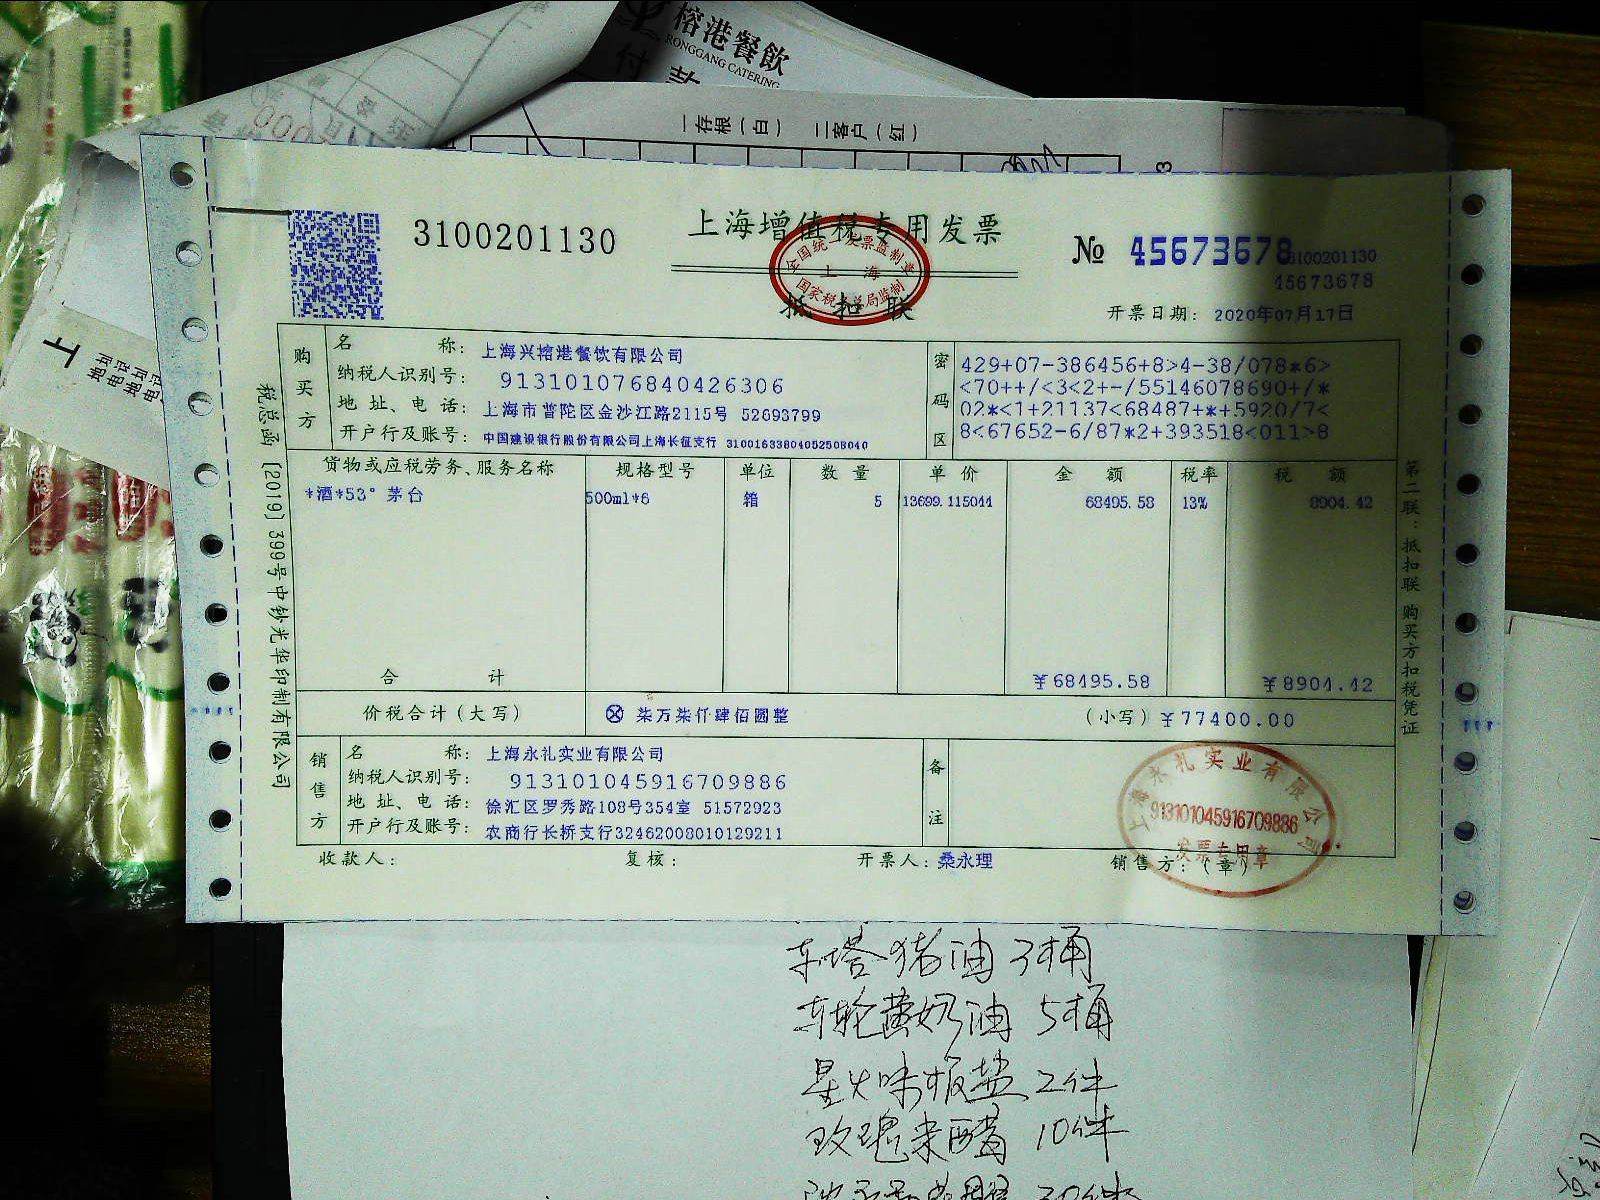 榕港餐飲
RONGGANG CATERING
付 款
一存根（白） 二客户（红）
3100201130
上海增值税专用发票
全国统一发票监制章
上 海
国家税务总局监制
抵 扣 联
№ 45673678
3100201130
45673678
开票日期： 2020年07月17日
购买方
名 称： 上海兴榕港餐饮有限公司
纳税人识别号： 913101076840426306
地 址、电 话： 上海市普陀区金沙江路2115号 52693799
开户行及账号： 中国建设银行股份有限公司上海长征支行 31001633804052508040
密码区
429+07-386456+8>4-38/078*6>
<70++/<3<2+-/55146078690+/*
02*<1+21137<68487+*+5920/7<
8<67652-6/87*2+393518<011>8
货物或应税劳务、服务名称 规格型号 单位 数 量 单 价 金 额 税率 税 额
*酒*53°茅台 500ml*6 箱 5 13699.115044 68495.58 13% 8904.42
合 计 ￥68495.58 ￥8904.42
价税合计（大写） ⊗ 柒万柒仟肆佰圆整 （小写）￥77400.00
销售方
名 称： 上海永礼实业有限公司
纳税人识别号： 913101045916709886
地 址、电 话： 徐汇区罗秀路108号354室 51572923
开户行及账号： 农商行长桥支行32462008010129211
备注
上海永礼实业有限公司
913101045916709886
发票专用章
收款人： 复核： 开票人：桑永理 销售方：（章）
税总函［2019］399号中钞光华印制有限公司
第二联：抵扣联 购买方扣税凭证
车塔猪油 3桶
车轮黄奶油 5桶
星火味极盐 2件
玫瑰米醋 10件